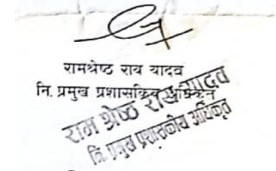 रामश्रेष्ठ राय यादव
नि. प्रमुख प्रशासकिय अधिकृत
राम श्रेष्ठ राय यादव
नि. प्रमुख प्रशासकीय अधिकृत